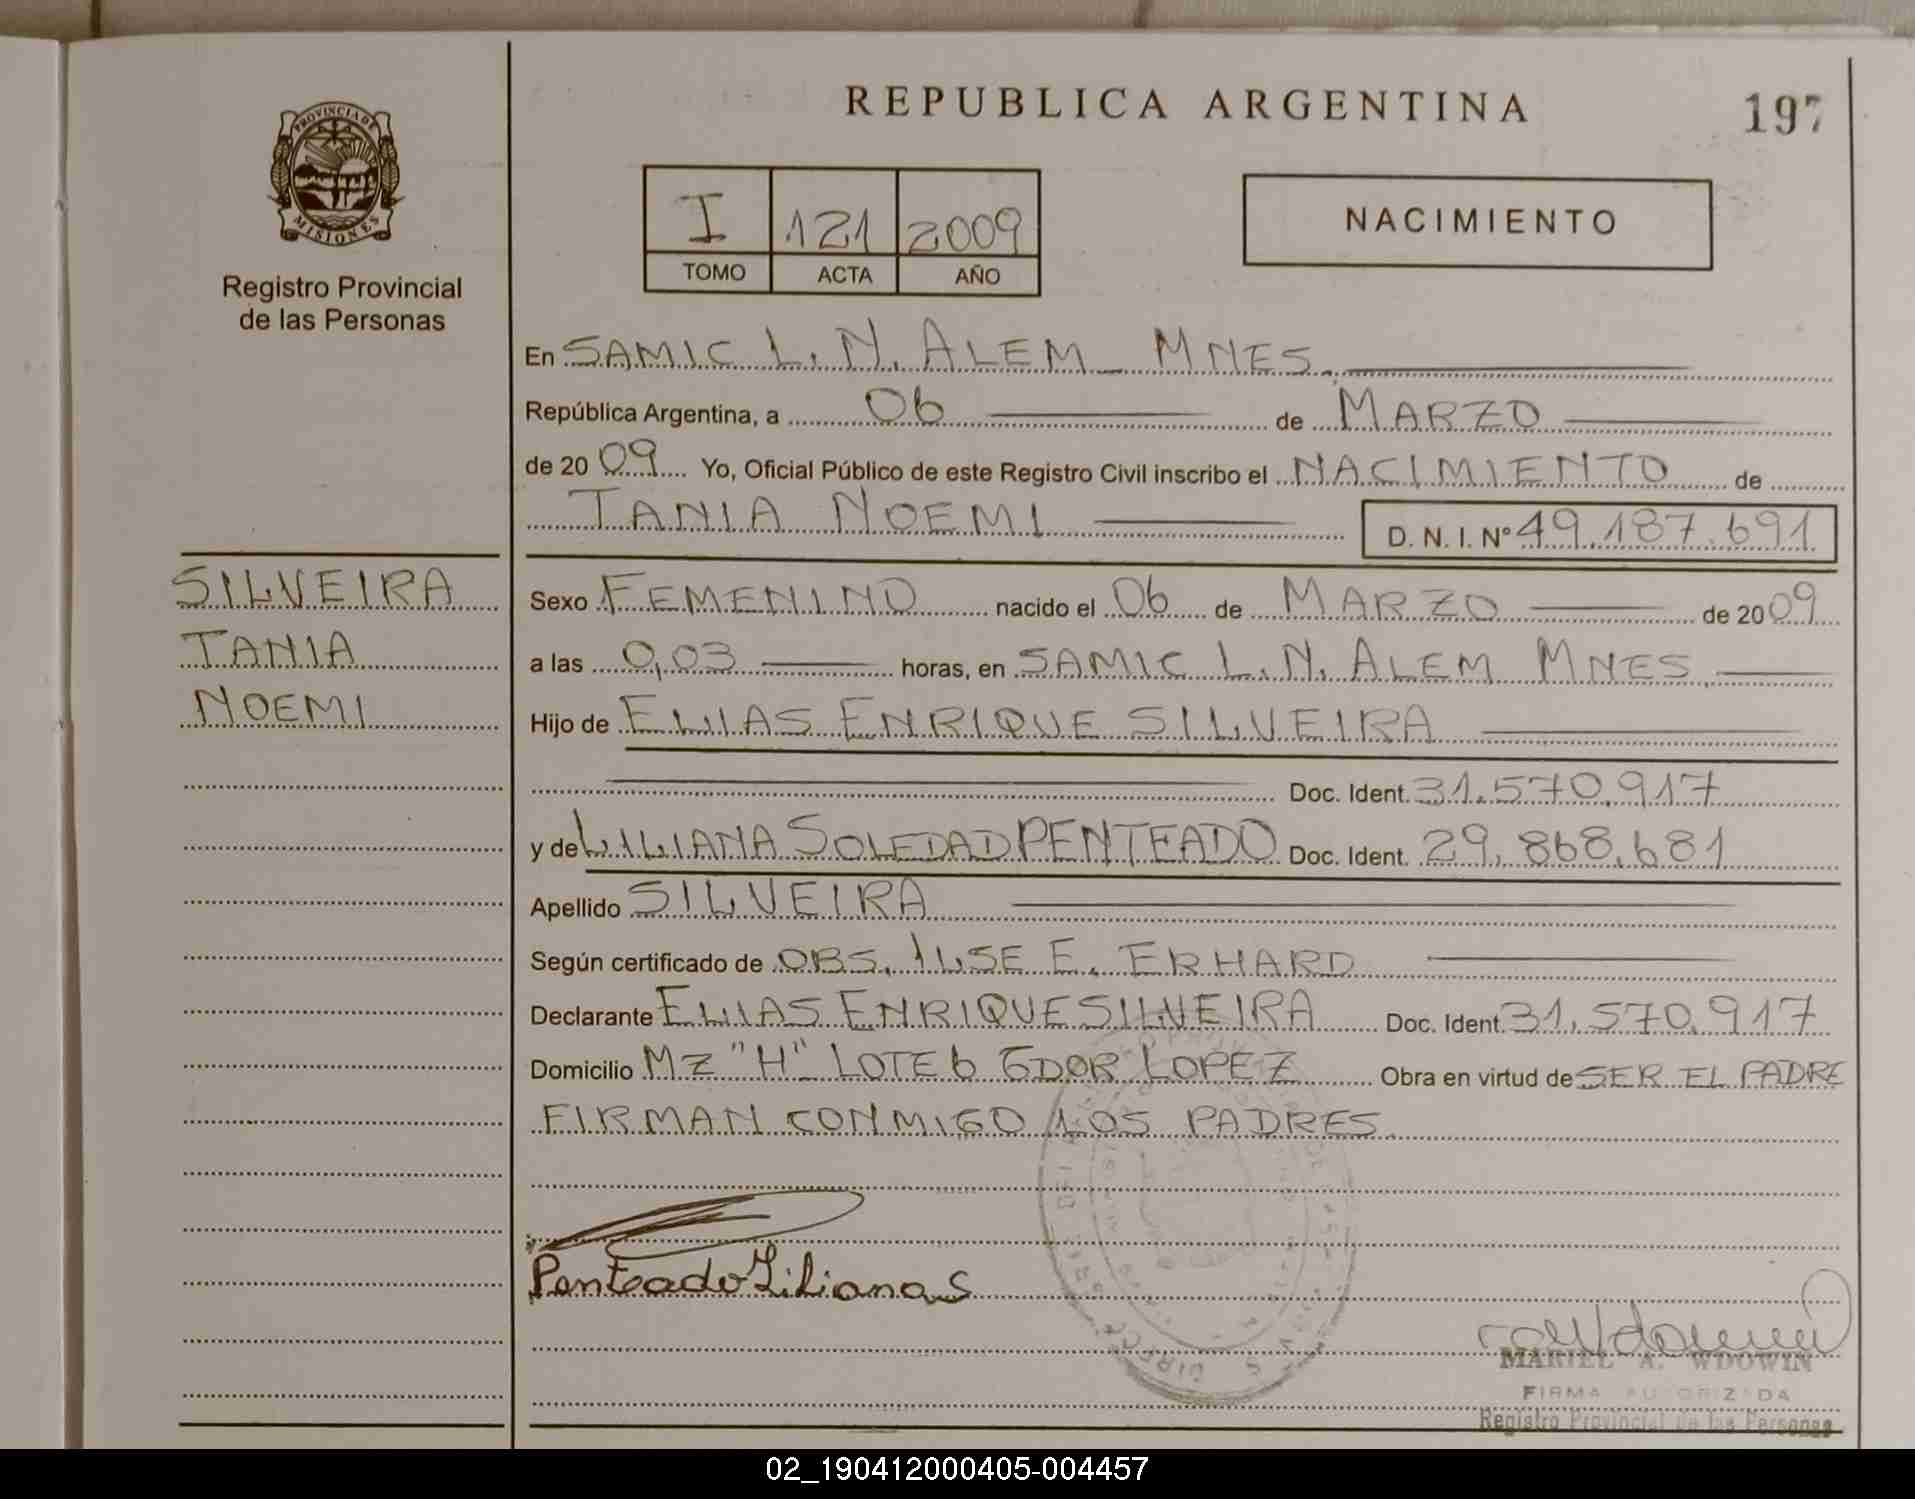 REPUBLICA ARGENTINA
197
PROVINCIA DE
MISIONES
Registro Provincial
de las Personas
I 121 2009
TOMO ACTA AÑO
NACIMIENTO
En SAMIC L. N. ALEM MNES.
República Argentina, a 06 de MARZO
de 2009 Yo, Oficial Público de este Registro Civil inscribo el NACIMIENTO de
TANIA NOEMI D. N. I. Nº 49.187.691
SILVEIRA
TANIA
NOEMI
Sexo FEMENINO nacido el 06 de MARZO de 2009
a las 0,03 horas, en SAMIC L. N. ALEM MNES.
Hijo de ELIAS ENRIQUE SILVEIRA
Doc. Ident. 31.570.917
y de LILIANA SOLEDAD PENTEADO Doc. Ident. 29.868.681
Apellido SILVEIRA
Según certificado de OBS. ILSE E. ERHARD
Declarante ELIAS ENRIQUE SILVEIRA Doc. Ident. 31.570.917
Domicilio MZ "H" LOTE 6 GDOR LOPEZ Obra en virtud de SER EL PADRE
FIRMAN CONMIGO LOS PADRES
Penteado Liliana S
MARIEL A. WDOWIN
FIRMA AUTORIZADA
Registro Provincial de las Personas
02_190412000405-004457